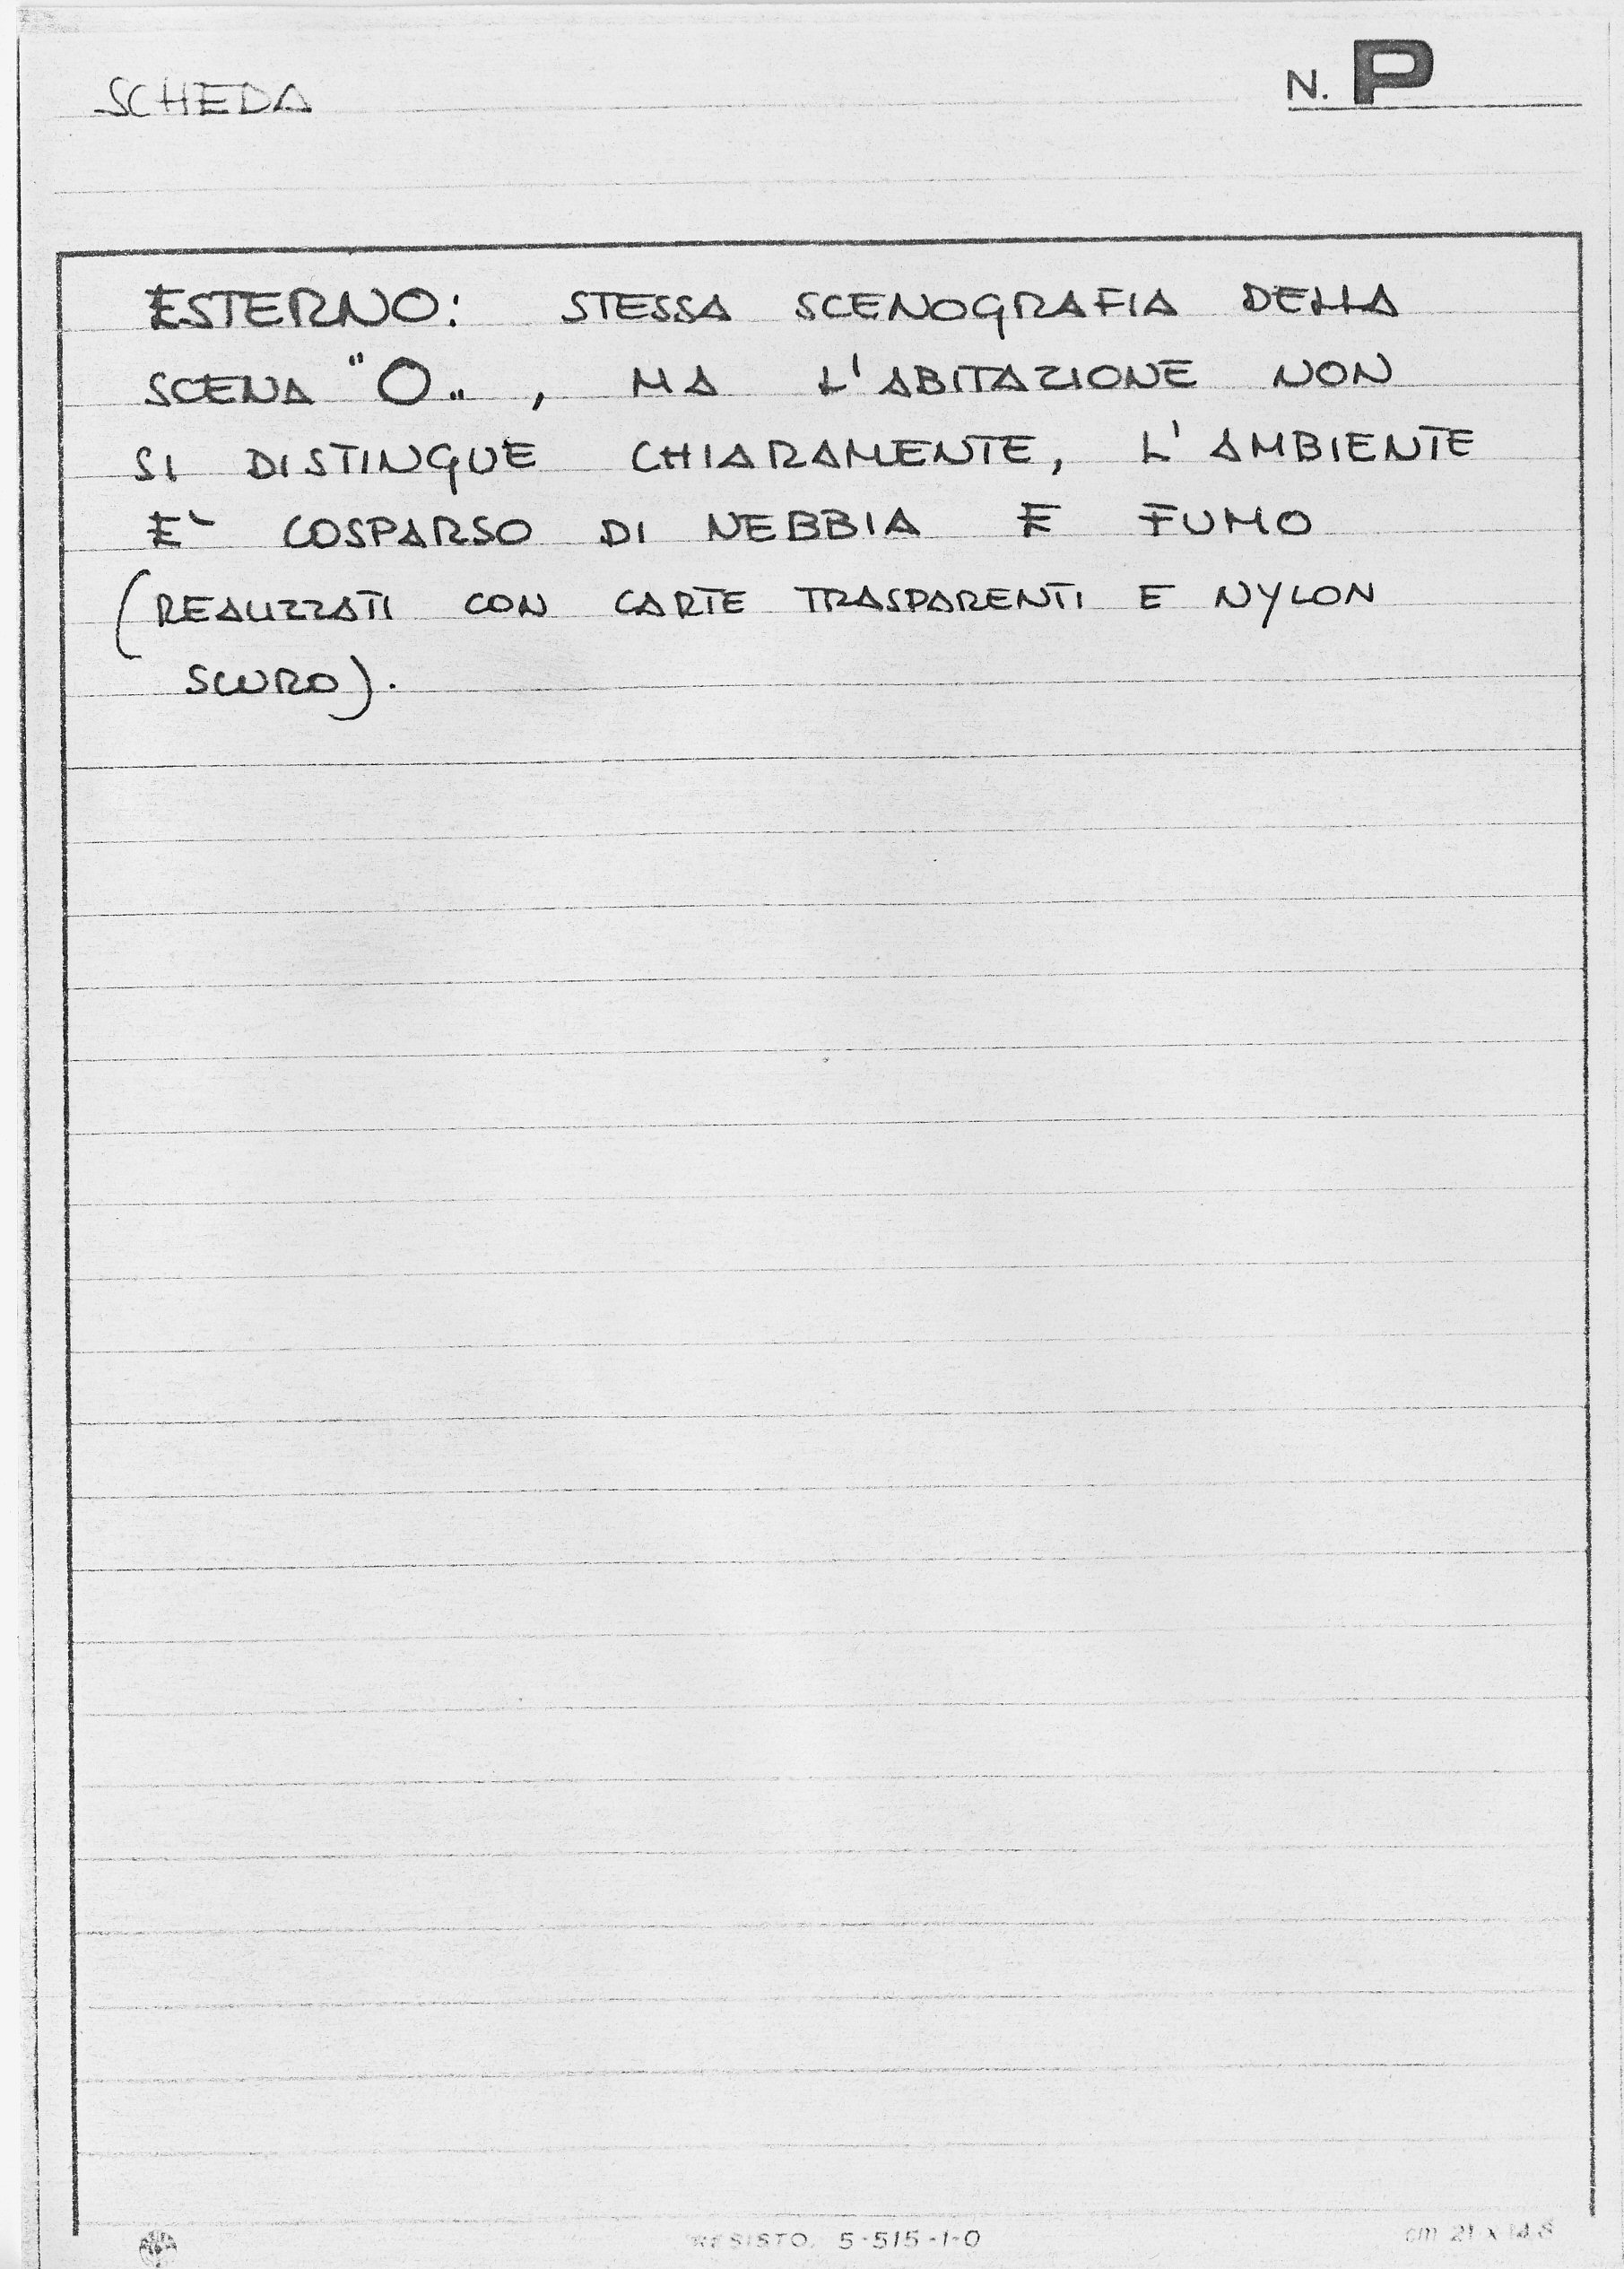 SCHEDA N. P
ESTERNO: STESSA SCENOGRAFIA DELLA
SCENA "O" , MA L'ABITAZIONE NON
SI DISTINGUE CHIARAMENTE, L'AMBIENTE
E` COSPARSO DI NEBBIA E FUMO
(REALIZZATI CON CARTE TRASPARENTI E NYLON
SCURO).
RESISTO. 5-515-1-0 cm 21 x 14.8